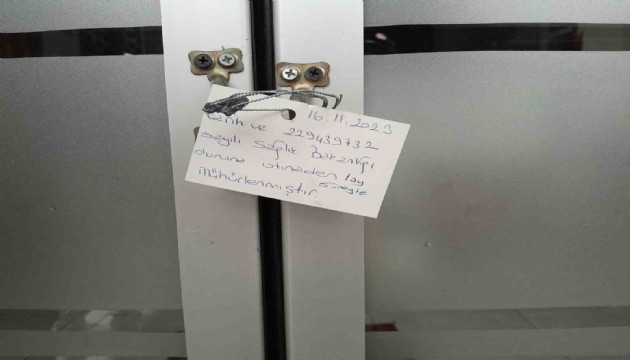 16.11.2023
tarih ve 229439732
sayılı Sağlık Bakanlığı
istinaden 1 ay
süreyle
Mühürlenmiştir